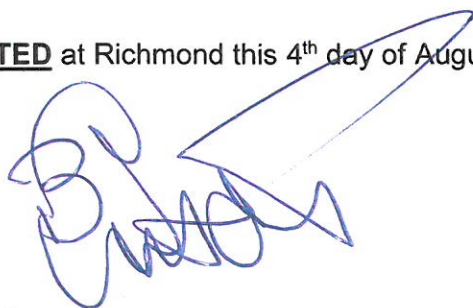 TED at Richmond this 4th day of Augu